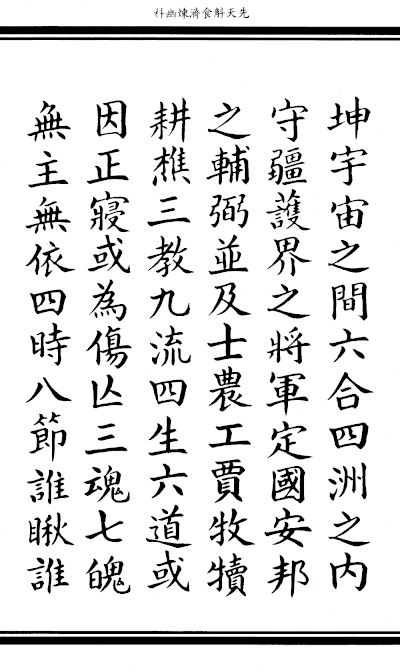 先天斛食濟煉幽科
坤宇宙之間六合四洲之内
守疆護界之將軍定國安邦
之輔弼並及士農工賈牧犢
耕樵三教九流四生六道或
因正寢或為傷亾三魂七魄
無主無依四時八節誰瞅誰